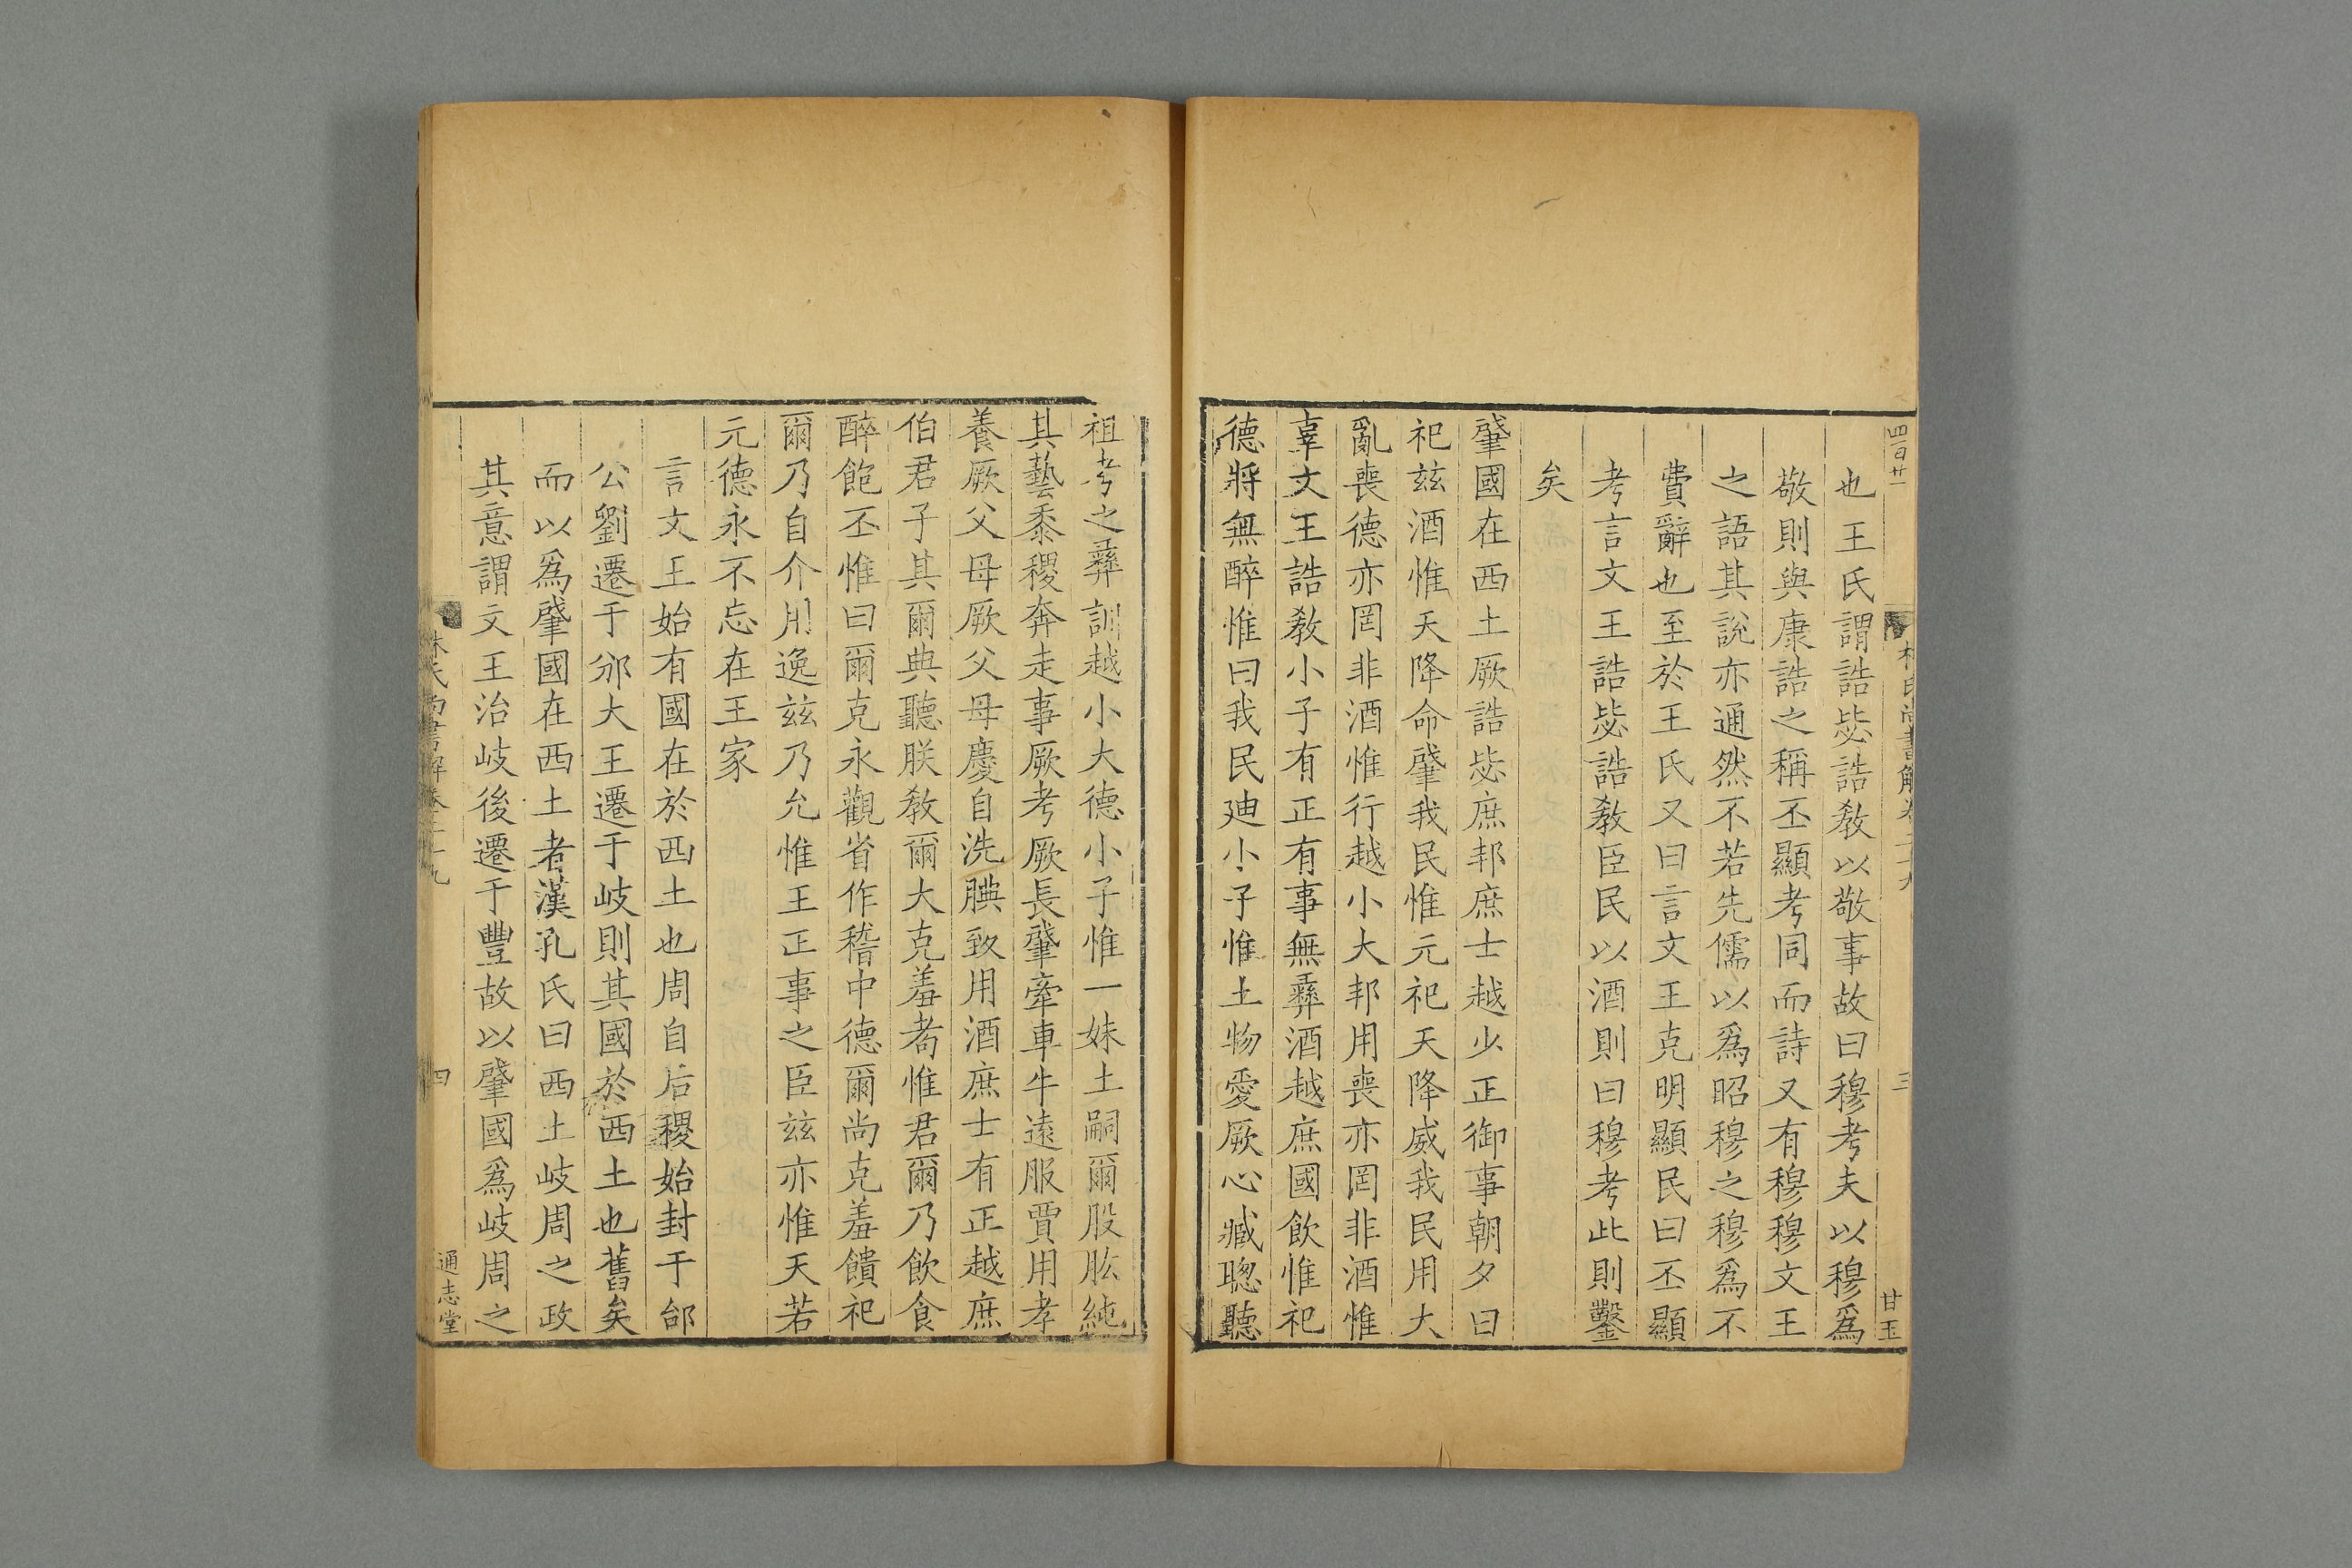 四百廿一
林氏尚書解卷二十九
三
甘玉
也王氏謂誥毖誥教以敬事故曰穆考夫以穆爲
敬則與康誥之稱丕顯考同而詩又有穆穆文王
之語其說亦通然不若先儒以爲昭穆之穆爲不
費辭也至於王氏又曰言文王克明顯民曰丕顯
考言文王誥毖誥教臣民以酒則曰穆考此則鑿
矣
肈國在西土厥誥毖庶邦庶士越少正御事朝夕曰
祀兹酒惟天降命肈我民惟元祀天降威我民用大
亂喪德亦罔非酒惟行越小大邦用喪亦罔非酒惟
辜文王誥教小子有正有事無彝酒越庶國飲惟祀
德將無醉惟曰我民廸小子惟土物愛厥心臧聰聽
祖考之彝訓越小大德小子惟一妹土嗣爾股肱純
其藝黍稷奔走事厥考厥長肈牽車牛遠服賈用孝
養厥父母厥父母慶自洗腆致用酒庶士有正越庶
伯君子其爾典聽朕教爾大克羞耉惟君爾乃飲食
醉飽丕惟曰爾克永觀省作稽中德爾尚克羞饋祀
爾乃自介用逸兹乃允惟王正事之臣兹亦惟天若
元德永不忘在王家
言文王始有國在於西土也周自后稷始封于邰
公劉遷于邠大王遷于岐則其國於西土也舊矣
而以爲肈國在西土者漢孔氏曰西土岐周之政
其意謂文王治岐後遷于豐故以肈國爲岐周之
林氏尚書解卷二十九
四
通志堂